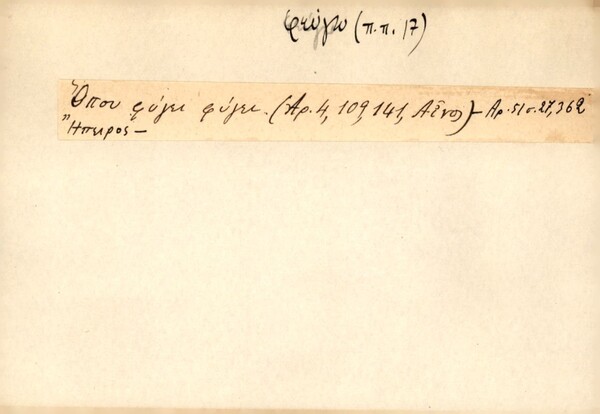 φεύγω (π.π. 17)
Ὅπου φύγει φύγει. (Ἀρ. 4, 109, 141, Αἶνος) – Ἀρ. 51 σ. 27, 362
Ἤπειρος –